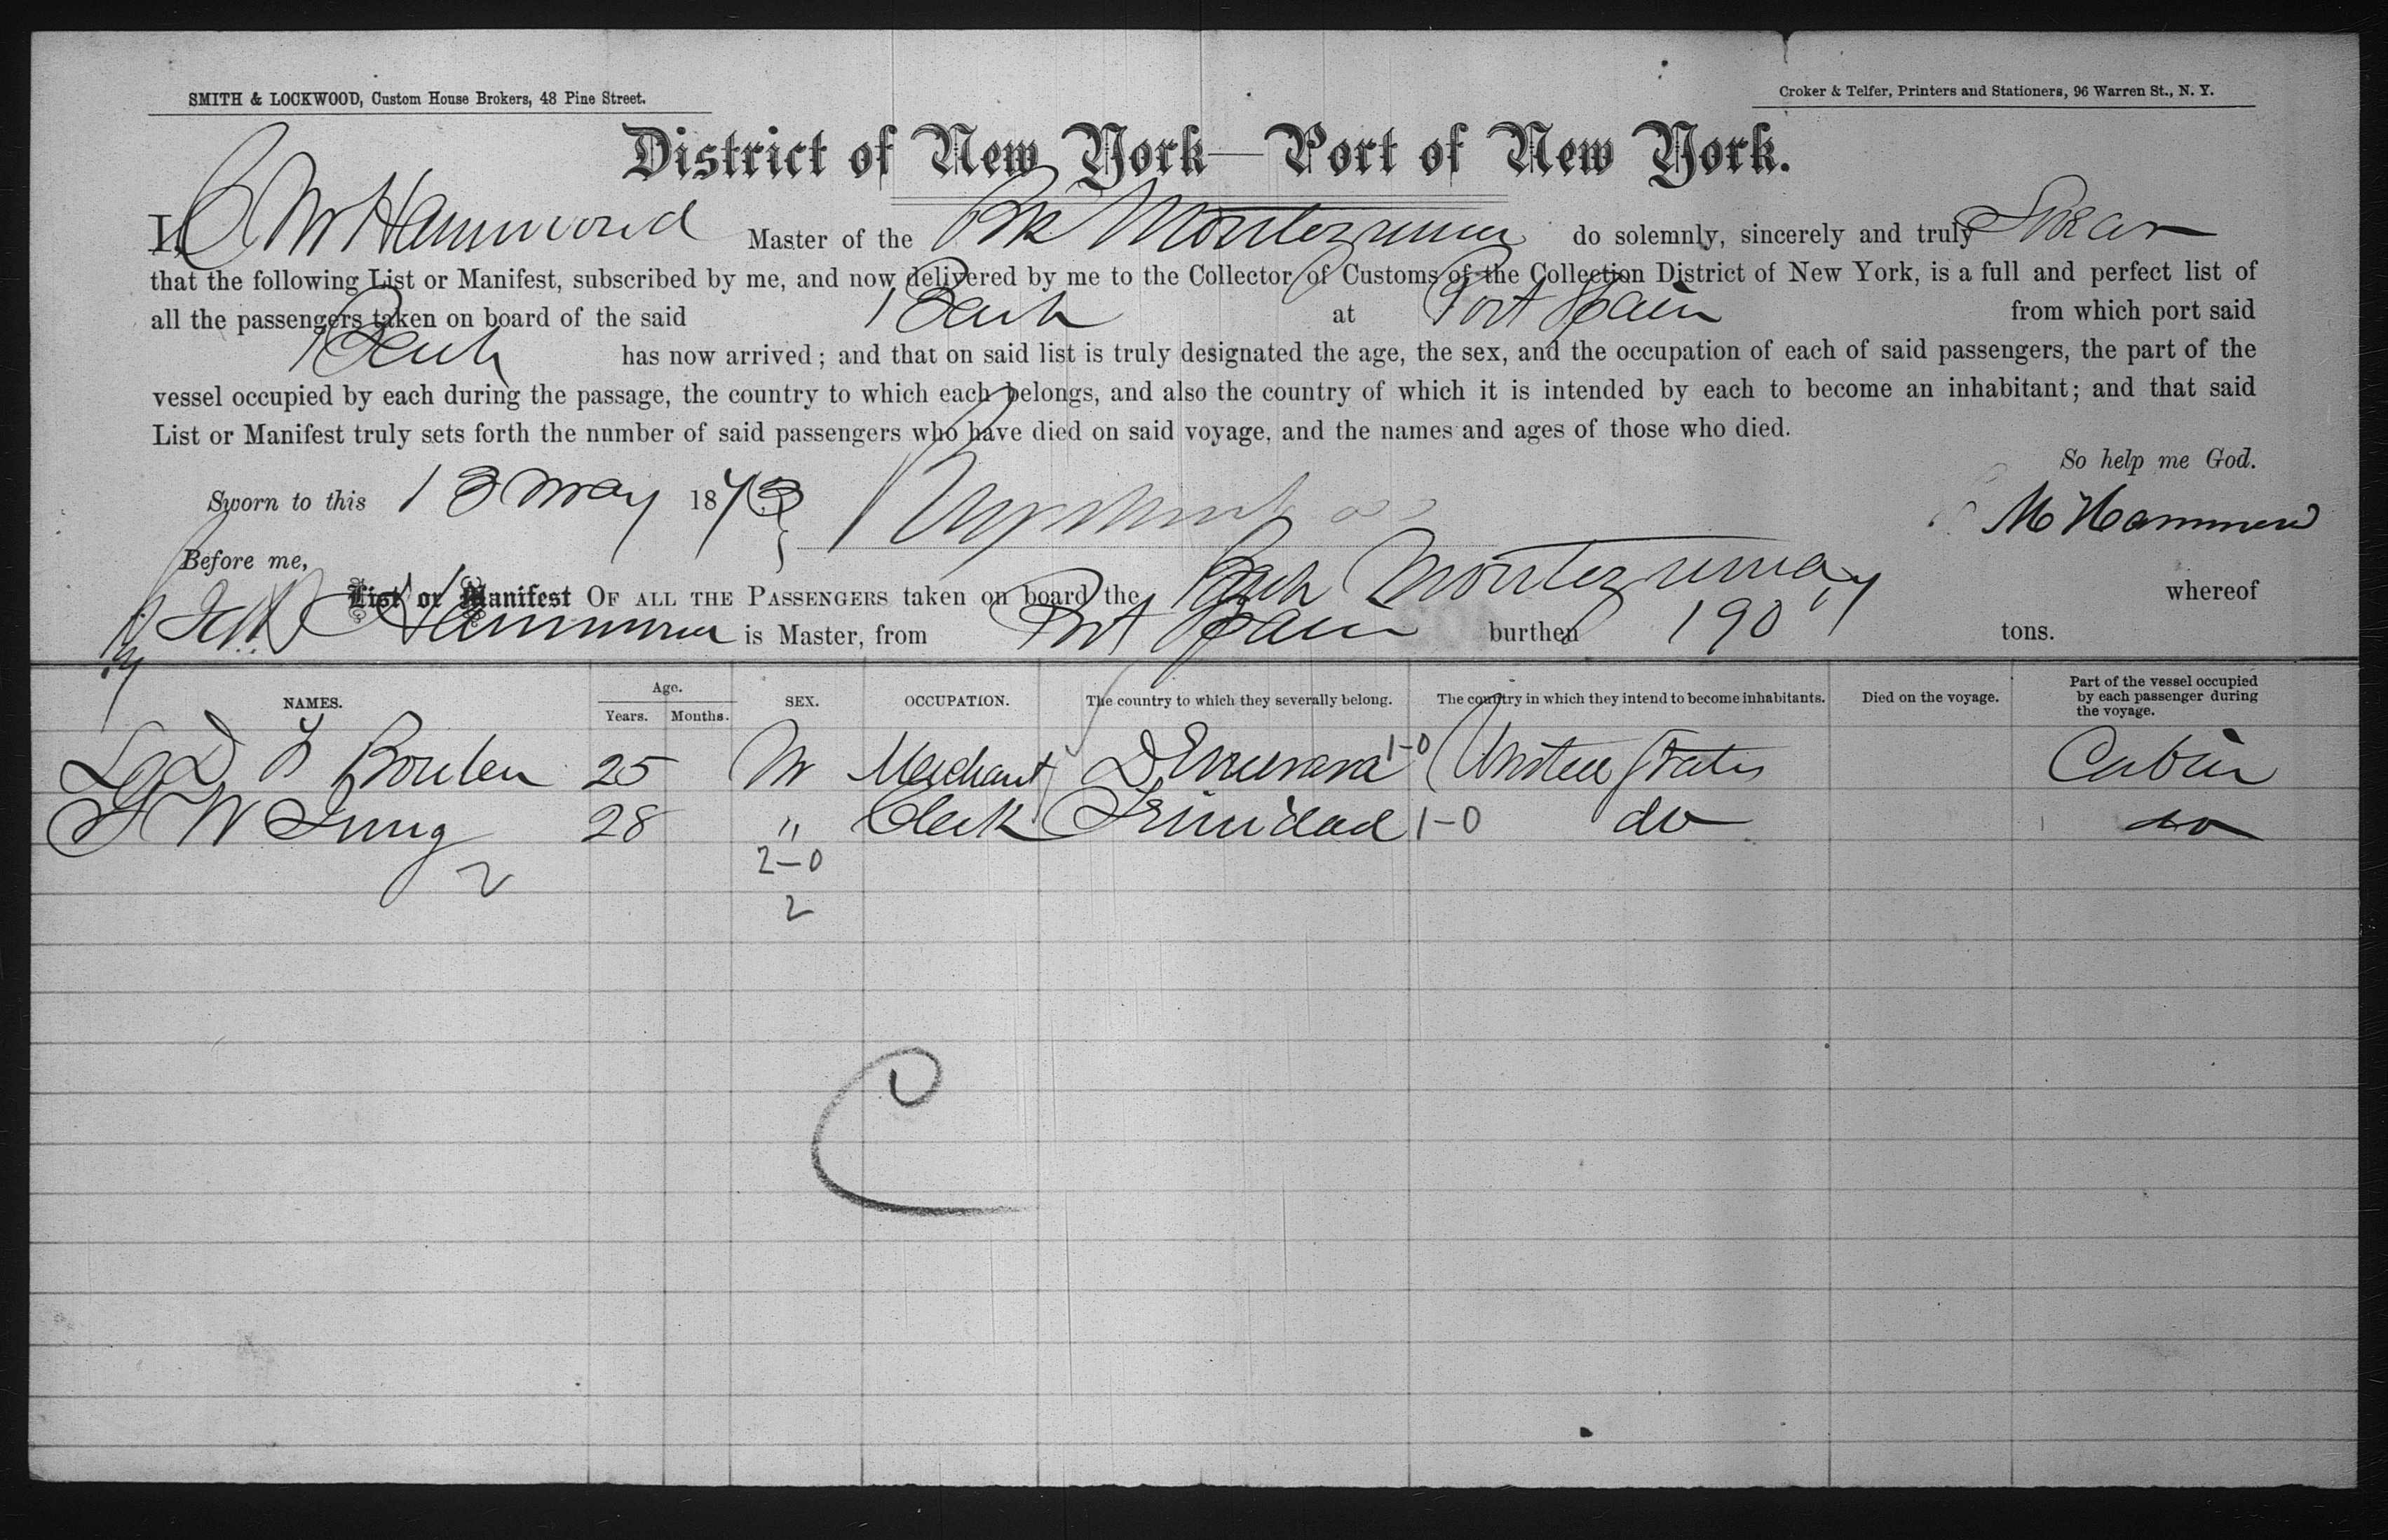 SMITH & LOCKWOOD, Custom House Brokers, 48 Pine Street.
Croker & Telfer, Printers and Stationers, 96 Warren St., N. Y.
District of New York—Port of New York.
I, M Hammond Master of the Bk Montezuma do solemnly, sincerely and truly Swear
that the following List or Manifest, subscribed by me, and now delivered by me to the Collector of Customs of the Collection District of New York, is a full and perfect list of
all the passengers taken on board of the said Bark at Port Spain from which port said
Bark has now arrived; and that on said list is truly designated the age, the sex, and the occupation of each of said passengers, the part of the
vessel occupied by each during the passage, the country to which each belongs, and also the country of which it is intended by each to become an inhabitant; and that said
List or Manifest truly sets forth the number of said passengers who have died on said voyage, and the names and ages of those who died.
So help me God.
Sworn to this 13 May 1873
M Hammond
Before me,
List or Manifest OF ALL THE PASSENGERS taken on board the Bark Montezuma whereof
Hammond is Master, from Port Spain burthen 190 tons.
NAMES. Age. Years. Months. SEX. OCCUPATION. The country to which they severally belong. The country in which they intend to become inhabitants. Died on the voyage. Part of the vessel occupied by each passenger during the voyage.
25 M Merchant Demerara 1-0 United States Cabin
W 28 " Clerk Trinidad 1-0 do do
2 2-0
2
C